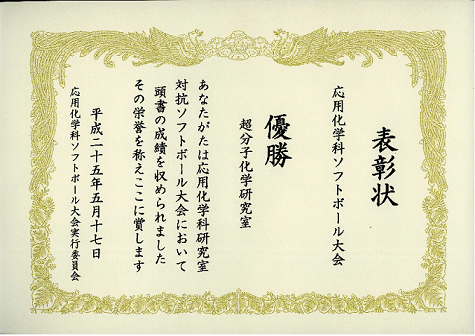 表彰状
応用化学科ソフトボール大会
優勝
超分子化学研究室
あなたがたは応用化学科研究室
対抗ソフトボール大会において
頭書の成績を収められました
その栄誉を称えここに賞します
平成二十五年五月十七日
応用化学科ソフトボール大会実行委員会